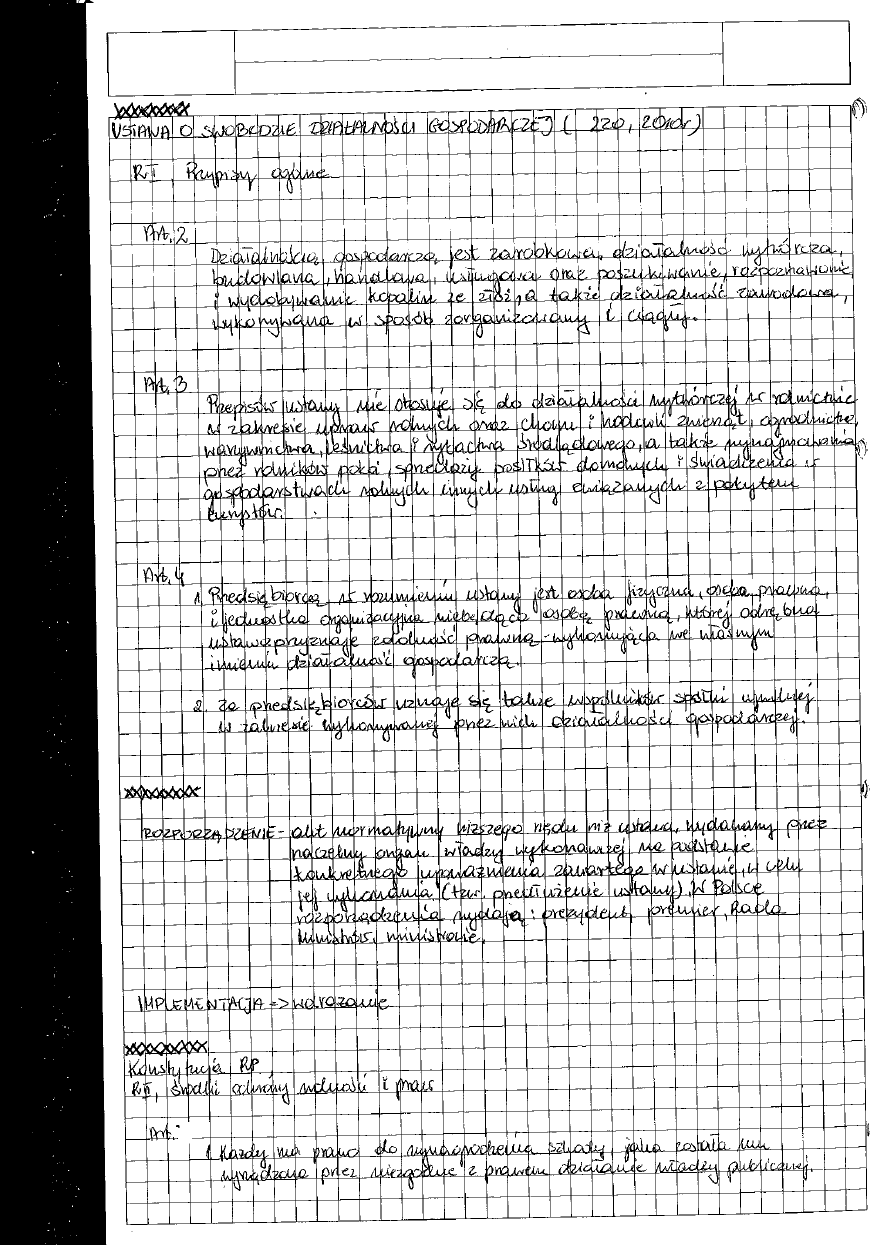 USTAWA O SWOBODZIE DZIAŁALNOŚCI GOSPODARCZEJ ( 220, 2010r)
RI, Przepisy ogólne
Art. 2
Działalnością gospodarczą jest zarobkowa działalność wytwórcza,
budowlana, handlowa, usługowa oraz poszukiwanie, rozpoznawanie
i wydobywanie kopalin ze złóż, a także działalność zawodowa,
wykonywana w sposób zorganizowany i ciągły.
Art. 3
Przepisów ustawy nie stosuje się do działalności wytwórczej w rolnictwie
w zakresie upraw rolnych oraz chowu i hodowli zwierząt, ogrodnictwa,
warzywnictwa, leśnictwa i rybactwa śródlądowego, a także wynajmowania
przez rolników pokoi, sprzedaży posiłków domowych i świadczenia w
gospodarstwach rolnych innych usług związanych z pobytem
turystów.
Art. 4
1. Przedsiębiorcą w rozumieniu ustawy jest osoba fizyczna, osoba prawna,
i jednostka organizacyjna niebędąca osobą prawną, której odrębna
ustawa przyznaje zdolność prawną - wykonująca we własnym
imieniu działalność gospodarczą.
2. Za przedsiębiorców uznaje się także wspólników spółki cywilnej
w zakresie wykonywanej przez nich działalności gospodarczej.
ROZPORZĄDZENIE - akt normatywny niższego rzędu niż ustawa, wydawany przez
naczelny organ władzy wykonawczej na podstawie
konkretnego upoważnienia zawartego w ustawie, w celu
jej wykonania. (tzw. przedłużenie ustawy). W Polsce
rozporządzenia wydają: prezydent, premier, Rada
Ministrów, ministrowie.
IMPLEMENTACJA => wdrażanie
Konstytucja RP,
RII, środki ochrony wolności i praw
Art.
1. Każdy ma prawo do wynagrodzenia szkody, jaka została mu
wyrządzona przez niezgodne z prawem działanie władzy publicznej.